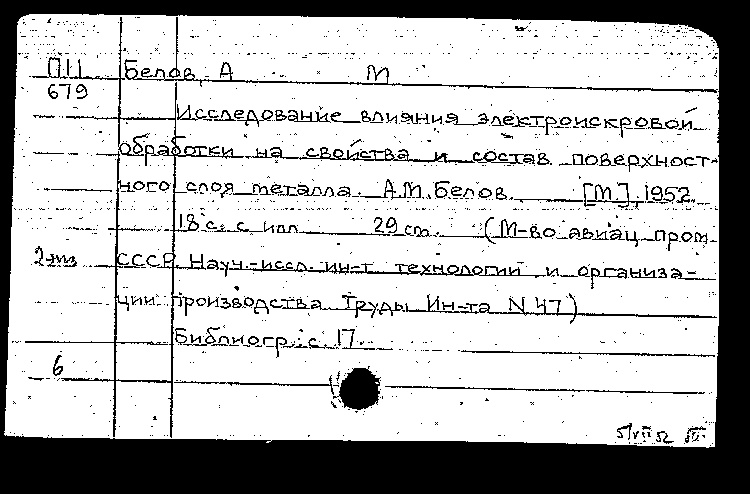 П11 Белов, А М
679
Исследование влияния электроискровой
обработки на свойства и состав поверхност-
ного слоя металла. А.М. Белов. [М], 1952
18 с. с илл 29 cm. (М-во авиац пром
2-й СССР. Науч.-иссл. ин-т технологии и организа-
ции производства Труды Ин-та N 47)
Библиогр.: с. 17.
6
5/VII 52